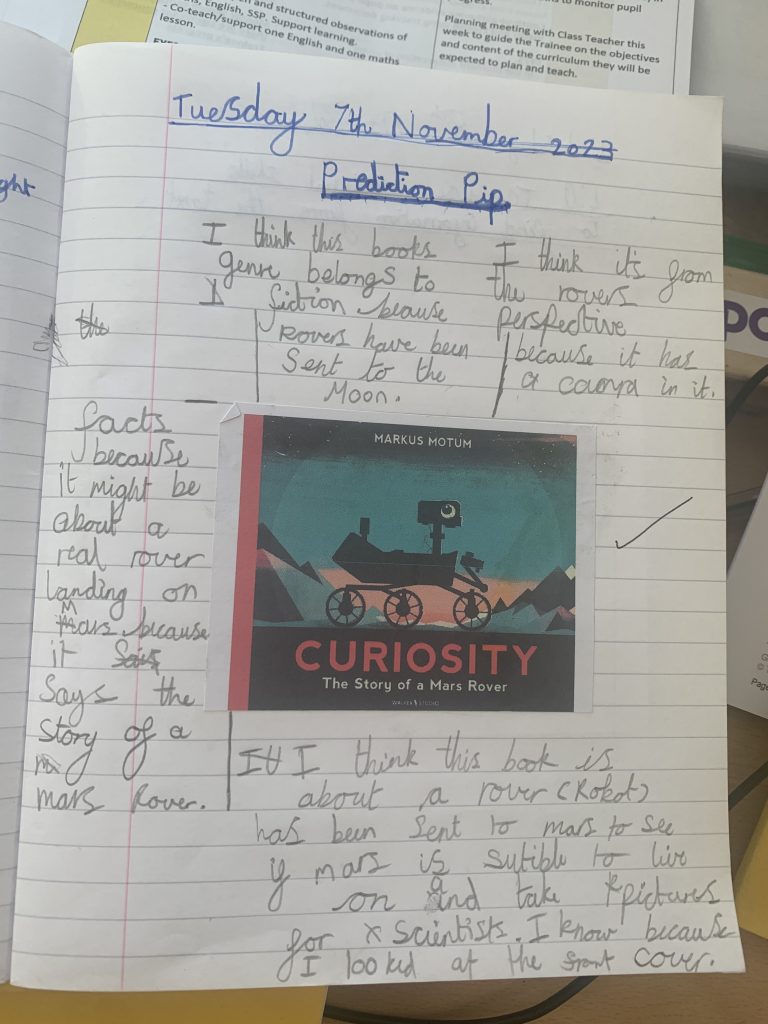 en and structured observations of
ns, English, SSP. Support learning.
- Co-teach/support one English and one maths
lesson.
to monitor pupil
Planning meeting with Class Teacher this
week to guide the Trainee on the objectives
and content of the curriculum they will be
expected to plan and teach.
ght
Tuesday 7th November 2023
Prediction Pip
I think this books
genre belongs to
fiction beause
Rovers have been
Sent to the
Moon.
I think it's from
the rovers
perspective
because it has
a camra in it.
the
facts
because
it might be
about a
real rover
landing on
Mars because
it
Says the
story of a
m
mars Rover.
MARKUS MOTUM
CURIOSITY
The Story of a Mars Rover
WALKER STUDIO
I think this book is
about a rover (Robot)
has been Sent to mars to see
if mars is sutible to live
on and take pictures
for scientists. I know because
I lookid at the front cover.
PO
Page